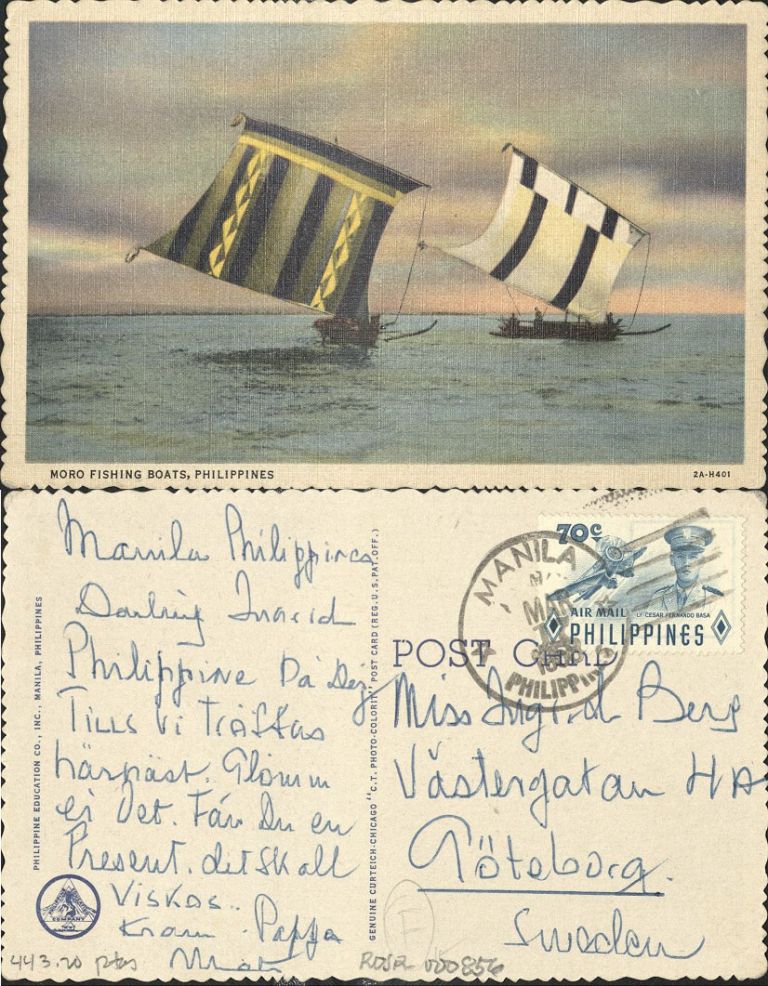 MORO FISHING BOATS, PHILIPPINES
2A-H401
PHILIPPINE EDUCATION CO., INC., MANILA, PHILIPPINES
Manila Philippines
Darling Ingrid
Philippine Da Dej
Tills vi träffas
härnäst. Glömm
ej det. Får Du en
Present. det skall
Viskas..
Kram. Pappa
443.20 ptas
GENUINE CURTEICH-CHICAGO "C.T. PHOTO-COLORIT" POST CARD (REG. U.S. PAT. OFF.)
70c
AIR MAIL
LT. CESAR FERNANDO BASA
PHILIPPINES
MANILA
MAR
PHILIPPINES
POST CARD
Miss Ingrid Berg
Västergatan 4A
Göteborg.
Sweden
F
000856